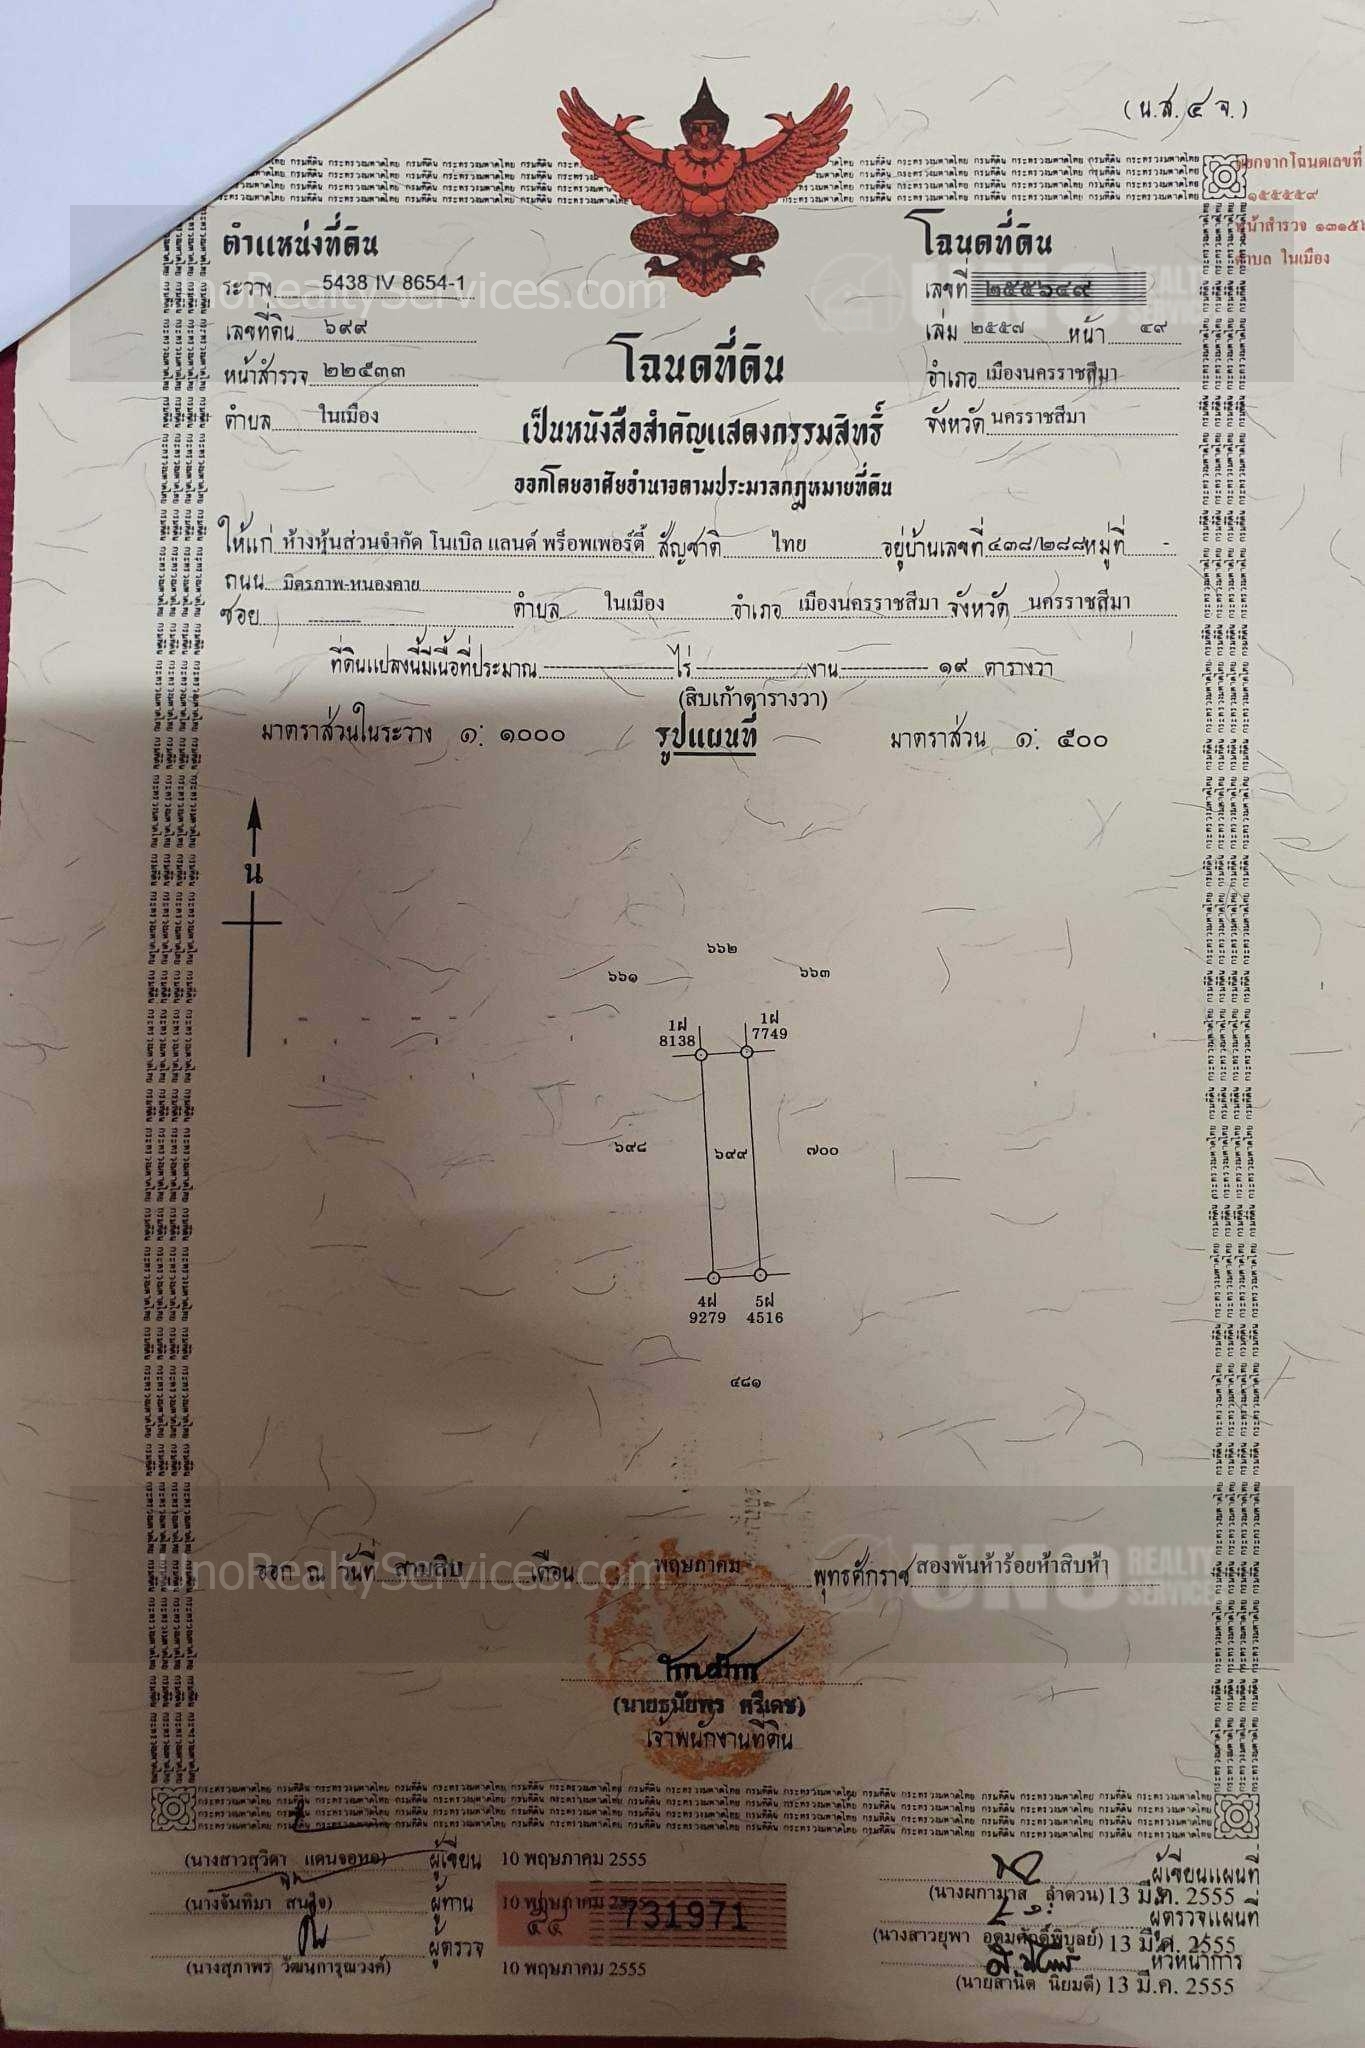 (น.ส.๔ จ.)
ออกจากโฉนดเลขที่
๑๕๕๕๕๙
หน้าสำรวจ
ตำบล ในเมือง
ตำแหน่งที่ดิน
โฉนดที่ดิน
ระวาง 5438 IV 8654-1
เลขที่ ๒๕๕๖๔๙
เลขที่ดิน ๖๙๙
เล่ม ๒๕๕๗ หน้า ๔๙
หน้าสำรวจ ๒๒๕๓๓
โฉนดที่ดิน
อำเภอ เมืองนครราชสีมา
ตำบล ในเมือง
เป็นหนังสือสำคัญแสดงกรรมสิทธิ์
จังหวัด นครราชสีมา
ออกโดยอาศัยอำนาจตามประมวลกฎหมายที่ดิน
ให้แก่ ห้างหุ้นส่วนจำกัด โนเบิล แลนด์ พร็อพเพอร์ตี้ สัญชาติ ไทย อยู่บ้านเลขที่ ๔๓๘/๒๘๘ หมู่ที่ -
ถนน มิตรภาพ-หนองคาย
ซอย ---------- ตำบล ในเมือง อำเภอ เมืองนครราชสีมา จังหวัด นครราชสีมา
ที่ดินแปลงนี้มีเนื้อที่ประมาณ ---------- ไร่ ---------- งาน ---------- ๑๙ ตารางวา
(สิบเก้าตารางวา)
มาตราส่วนในระวาง ๑: ๑๐๐๐ รูปแผนที่ มาตราส่วน ๑: ๕๐๐
น
๖๖๒
๖๖๑ ๖๖๓
1ฝ 1ฝ
8138 7749
๖๙๘ ๖๙๙ ๗๐๐
4ฝ 5ฝ
9279 4516
๔๘๑
ออก ณ วันที่ สามสิบ เดือน พฤษภาคม พุทธศักราช สองพันห้าร้อยห้าสิบห้า
(นายธนัยพร ศรีเดช)
เจ้าพนักงานที่ดิน
(นางสาวสุวิดา แดนจอหอ) ผู้เขียน 10 พฤษภาคม 2555
ผู้เขียนแผนที่
(นางผกามาส ลำดวน) 13 มี.ค. 2555
(นางจันทิมา สนใจ) ผู้ทาน 10 พฤษภาคม 2555
731971
ผู้ตรวจแผนที่
(นางสาวยุพา อุดมศักดิ์พิบูลย์) 13 มี.ค. 2555
ผู้ตรวจ
หัวหน้าการ
(นางสุภาพร วัฒนการุณวงค์) 10 พฤษภาคม 2555
(นายสานิต นิยมดี) 13 มี.ค. 2555
UnoRealtyServices.com
UNO REALTY SERVICES
UnoRealtyServices.com
UNO REALTY SERVICES